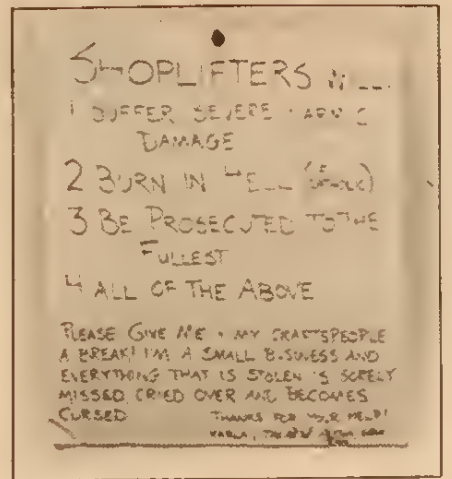 SHOPLIFTERS WILL
1 SUFFER SEVERE KARMIC
DAMAGE
2 BURN IN HELL (IF
CATHOLIC)
3 BE PROSECUTED TO THE
FULLEST
4 ALL OF THE ABOVE
PLEASE GIVE ME + MY CRAFTSPEOPLE
A BREAK! I'M A SMALL BUSINESS AND
EVERYTHING THAT IS STOLEN IS SORELY
MISSED, CRIED OVER AND BECOMES
CURSED
THANKS FOR YOUR HELP!
KARLA,